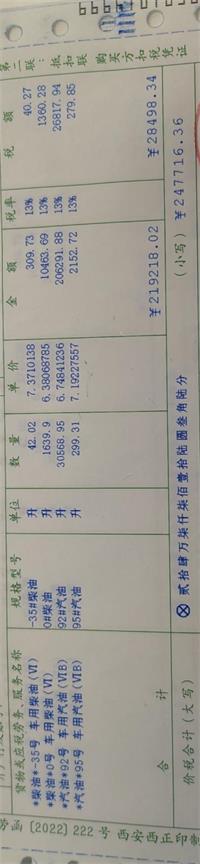 第二联：抵扣联 购买方扣税凭证
货物或应税劳务、服务名称 规格型号 单位 数量 单价 金额 税率 税额
*柴油*-35号 车用柴油(VI) -35#柴油 升 42.02 7.3710138 309.73 13% 40.27
*柴油*0号 车用柴油(VI) 0#柴油 升 1639.9 6.38068785 10463.69 13% 1360.28
*汽油*92号 车用汽油(VIB) 92#汽油 升 30568.95 6.74841236 206291.88 13% 26817.94
*汽油*95号 车用汽油(VIB) 95#汽油 升 299.31 7.19227557 2152.72 13% 279.85
合计 ￥219218.02 ￥28498.34
价税合计(大写) ⊗贰拾肆万柒仟柒佰壹拾陆圆叁角陆分 (小写) ￥247716.36
函[2022]222号 西安西正印制